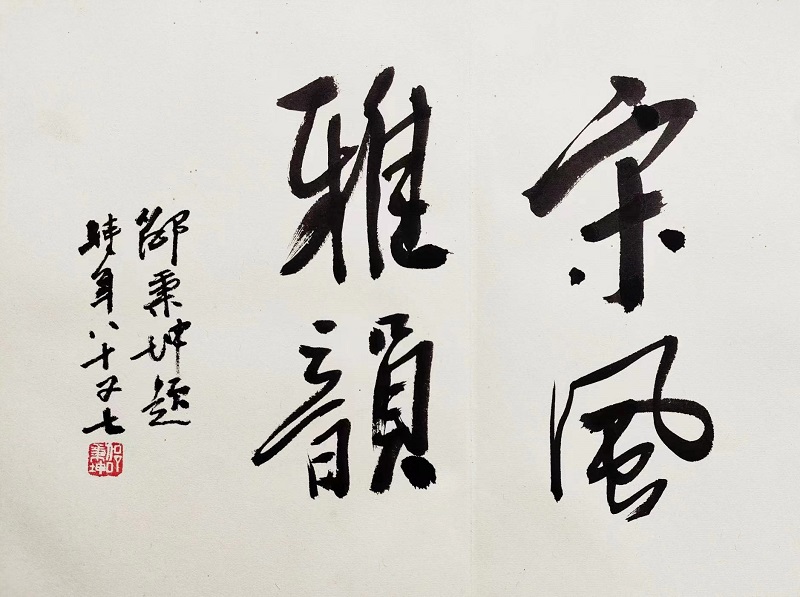 宋風
雅韻
邵秉坤題
時年八十又七
邵秉坤